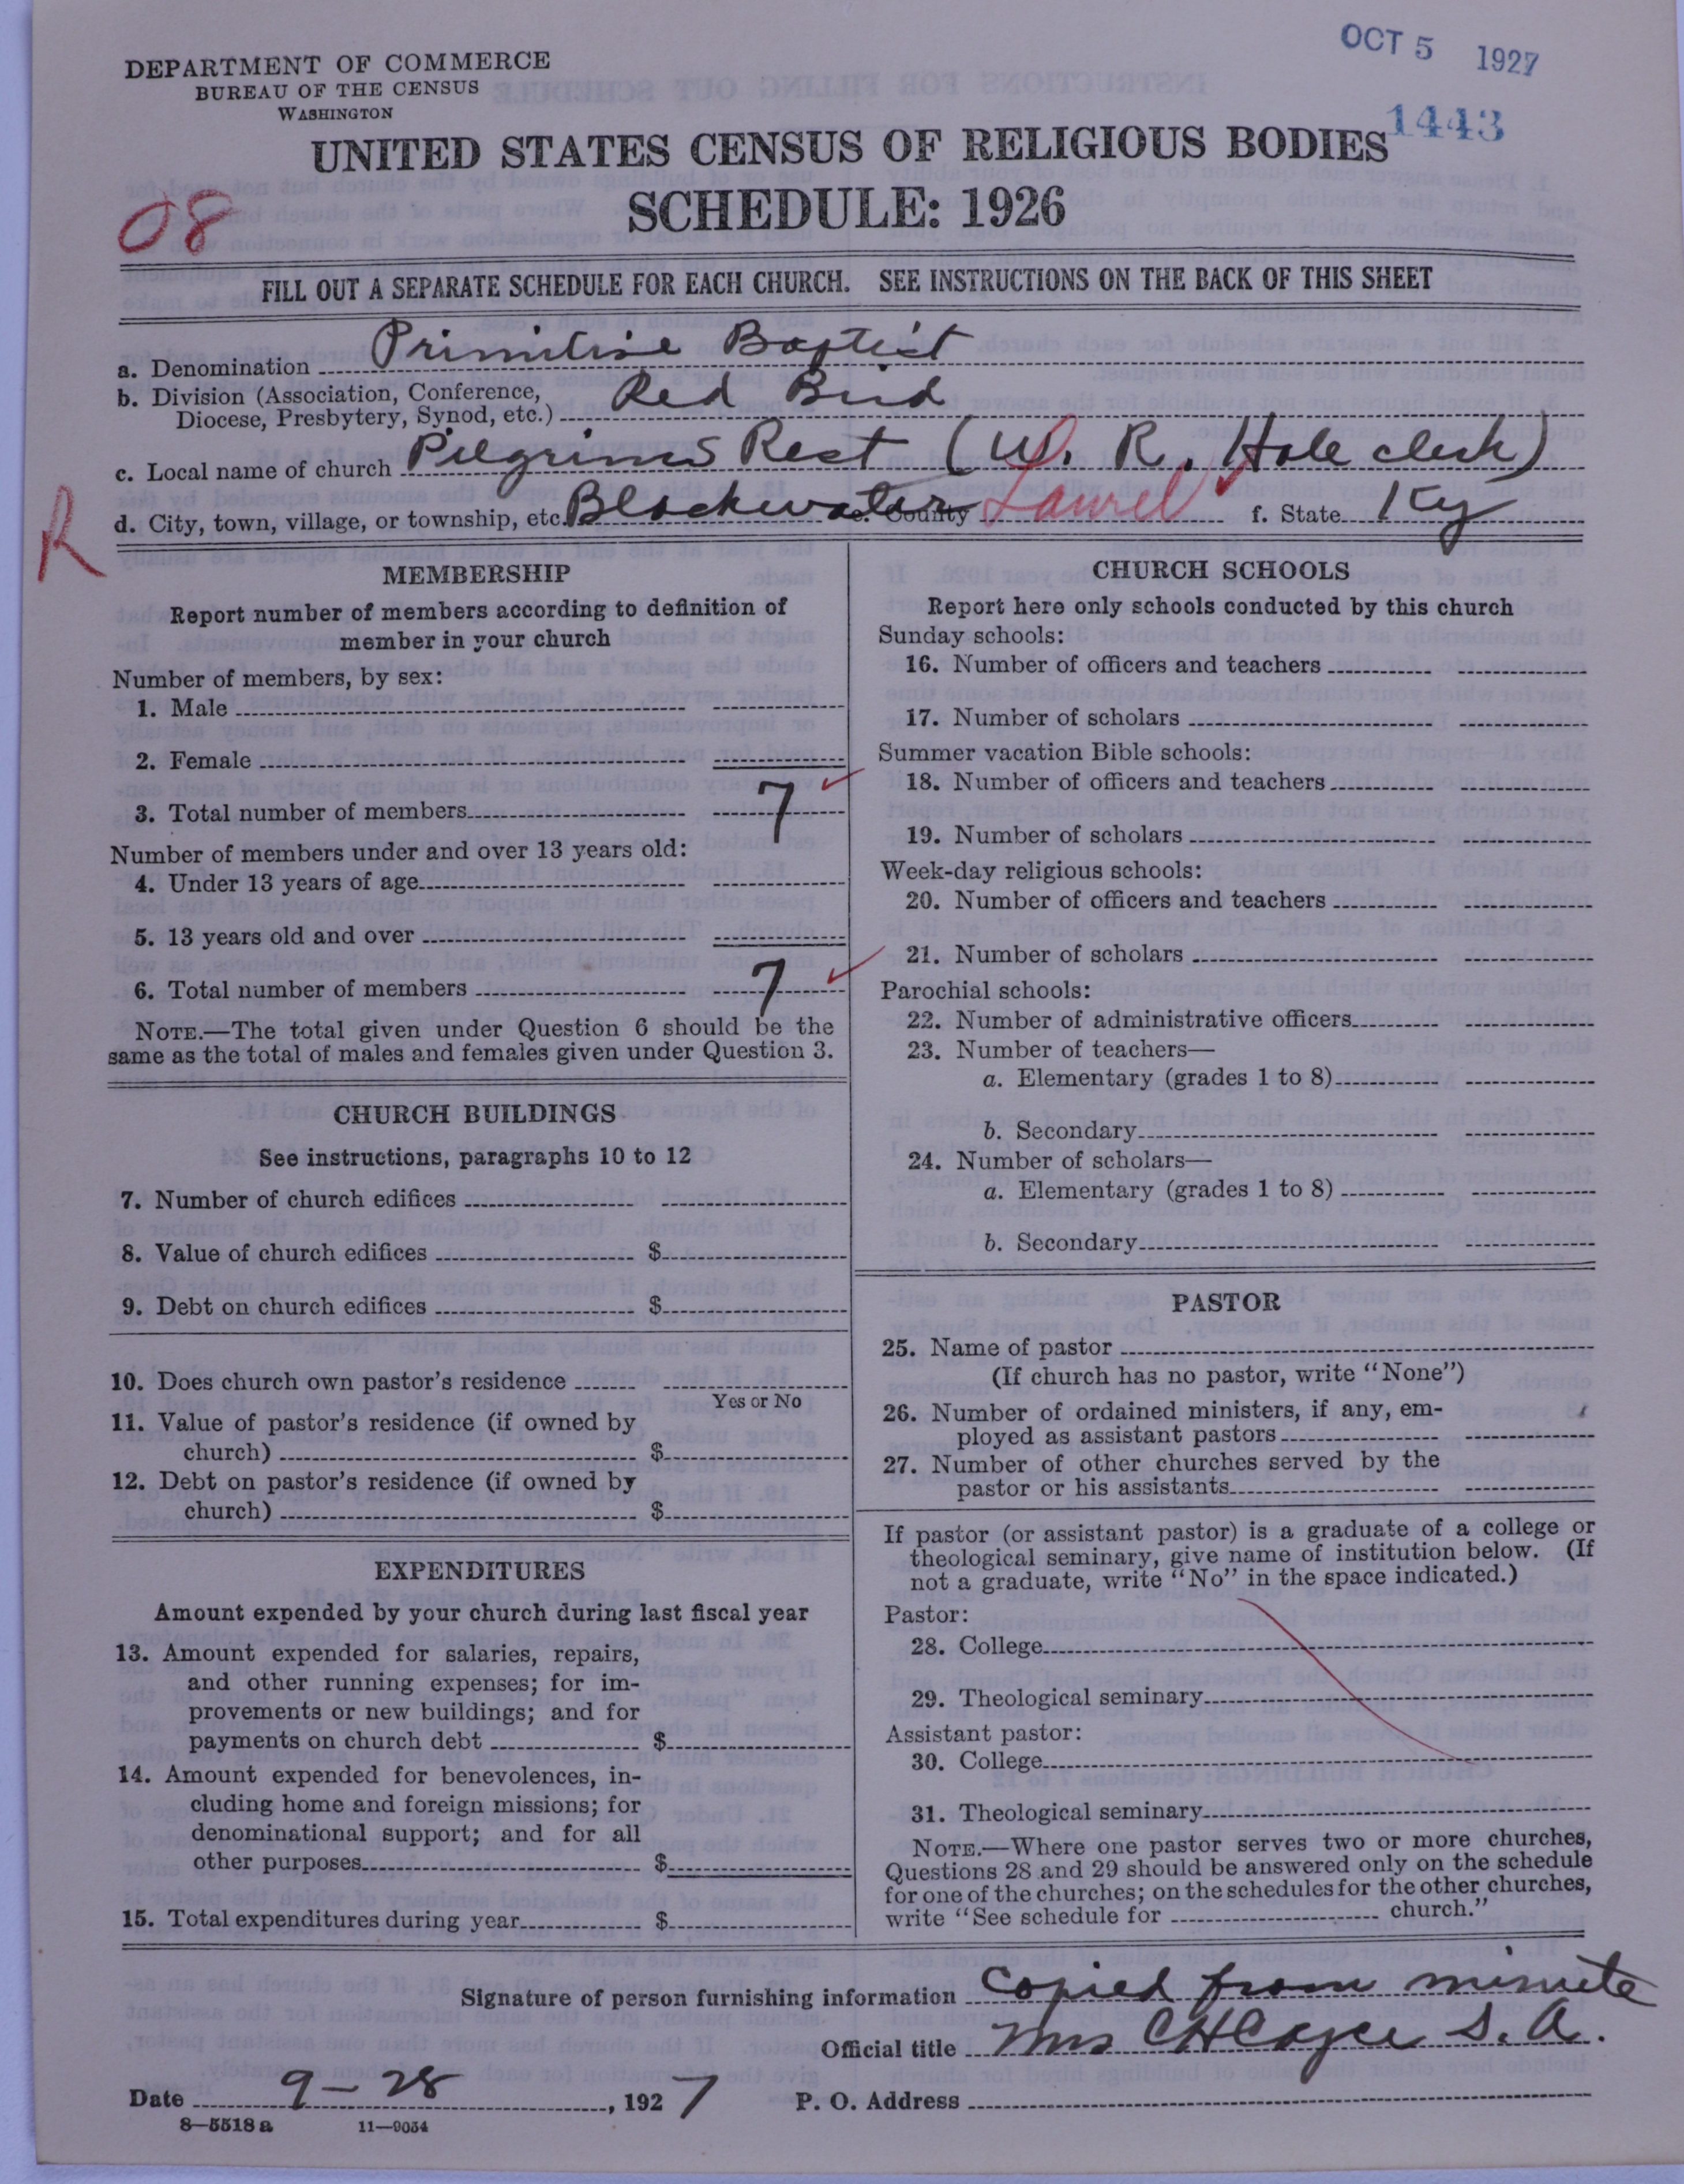 OCT 5 1927
DEPARTMENT OF COMMERCE
BUREAU OF THE CENSUS
WASHINGTON
1443
UNITED STATES CENSUS OF RELIGIOUS BODIES
SCHEDULE: 1926
08
FILL OUT A SEPARATE SCHEDULE FOR EACH CHURCH. SEE INSTRUCTIONS ON THE BACK OF THIS SHEET
a. Denomination Primitive Baptist
b. Division (Association, Conference, Diocese, Presbytery, Synod, etc.) Red Bird
c. Local name of church Pilgrims Rest (W. R. Hale clerk)
d. City, town, village, or township, etc. Blackwater e. County Laurel f. State Ky
R
MEMBERSHIP
Report number of members according to definition of
member in your church
Number of members, by sex:
1. Male
2. Female
3. Total number of members 7
Number of members under and over 13 years old:
4. Under 13 years of age
5. 13 years old and over
6. Total number of members 7
NOTE.—The total given under Question 6 should be the
same as the total of males and females given under Question 3.
CHURCH BUILDINGS
See instructions, paragraphs 10 to 12
7. Number of church edifices
8. Value of church edifices $
9. Debt on church edifices $
10. Does church own pastor's residence
Yes or No
11. Value of pastor's residence (if owned by
church) $
12. Debt on pastor's residence (if owned by
church) $
EXPENDITURES
Amount expended by your church during last fiscal year
13. Amount expended for salaries, repairs,
and other running expenses; for im-
provements or new buildings; and for
payments on church debt $
14. Amount expended for benevolences, in-
cluding home and foreign missions; for
denominational support; and for all
other purposes $
15. Total expenditures during year $
CHURCH SCHOOLS
Report here only schools conducted by this church
Sunday schools:
16. Number of officers and teachers
17. Number of scholars
Summer vacation Bible schools:
18. Number of officers and teachers
19. Number of scholars
Week-day religious schools:
20. Number of officers and teachers
21. Number of scholars
Parochial schools:
22. Number of administrative officers
23. Number of teachers—
a. Elementary (grades 1 to 8)
b. Secondary
24. Number of scholars—
a. Elementary (grades 1 to 8)
b. Secondary
PASTOR
25. Name of pastor
(If church has no pastor, write "None")
26. Number of ordained ministers, if any, em-
ployed as assistant pastors
27. Number of other churches served by the
pastor or his assistants
If pastor (or assistant pastor) is a graduate of a college or
theological seminary, give name of institution below. (If
not a graduate, write "No" in the space indicated.)
Pastor:
28. College
29. Theological seminary
Assistant pastor:
30. College
31. Theological seminary
NOTE.—Where one pastor serves two or more churches,
Questions 28 and 29 should be answered only on the schedule
for one of the churches; on the schedules for the other churches,
write "See schedule for church."
Signature of person furnishing information copied from minute
Official title Mrs C H Cayce S. A.
Date 9-28, 1927 P. O. Address
8—5518 a 11—9054